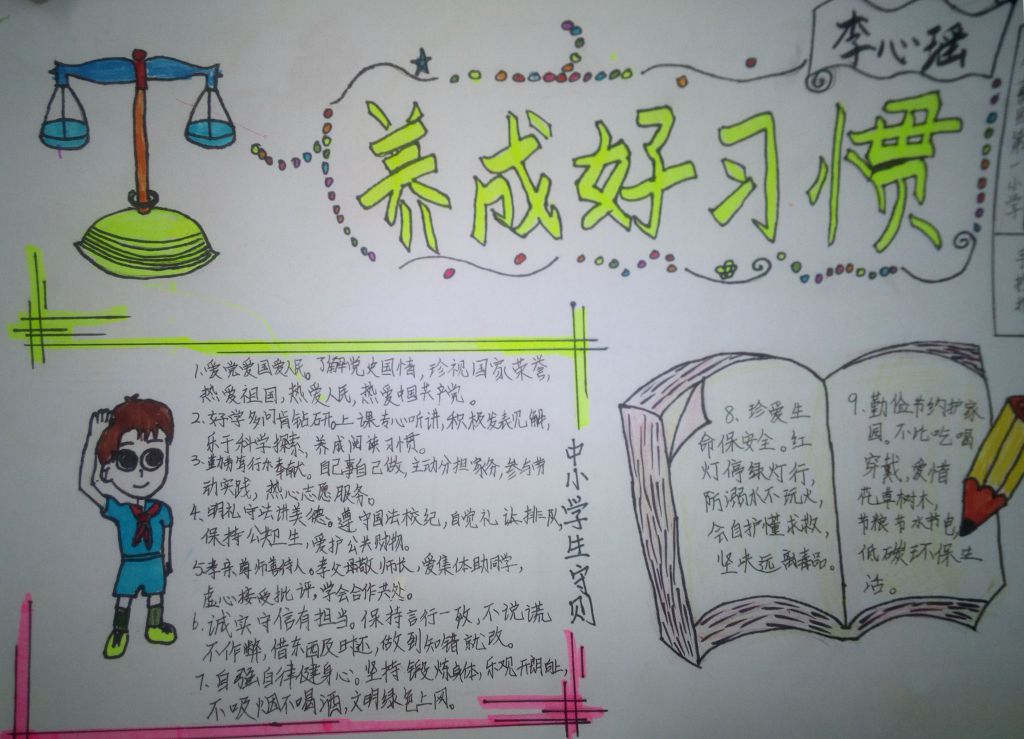 李心瑶
养成好习惯
第一小学
1.爱党爱国爱人民。了解党史国情，珍视国家荣誉，
热爱祖国，热爱人民，热爱中国共产党。
2.好学多问肯钻研。上课专心听讲，积极发表见解，
乐于科学探索，养成阅读习惯。
3.勤劳笃行乐奉献。自己事自己做，主动分担家务，参与劳
动实践，热心志愿服务。
4.明礼守法讲美德。遵守国法校纪，自觉礼让排队，
保持公共卫生，爱护公共财物。
5.孝亲尊师善待人。孝父母敬师长，爱集体助同学，
虚心接受批评，学会合作共处。
6.诚实守信有担当。保持言行一致，不说谎
不作弊，借东西及时还，做到知错就改。
7.自强自律健身心。坚持锻炼身体，乐观开朗向上，
不吸烟不喝酒，文明绿色上网。
中小学生守则
8.珍爱生
命保安全。红
灯停绿灯行，
防溺水不玩火，
会自护懂求救，
坚决远离毒品。
9.勤俭节约护家
园。不比吃喝
穿戴，爱惜
花草树木，
节粮节水节电，
低碳环保生
活。